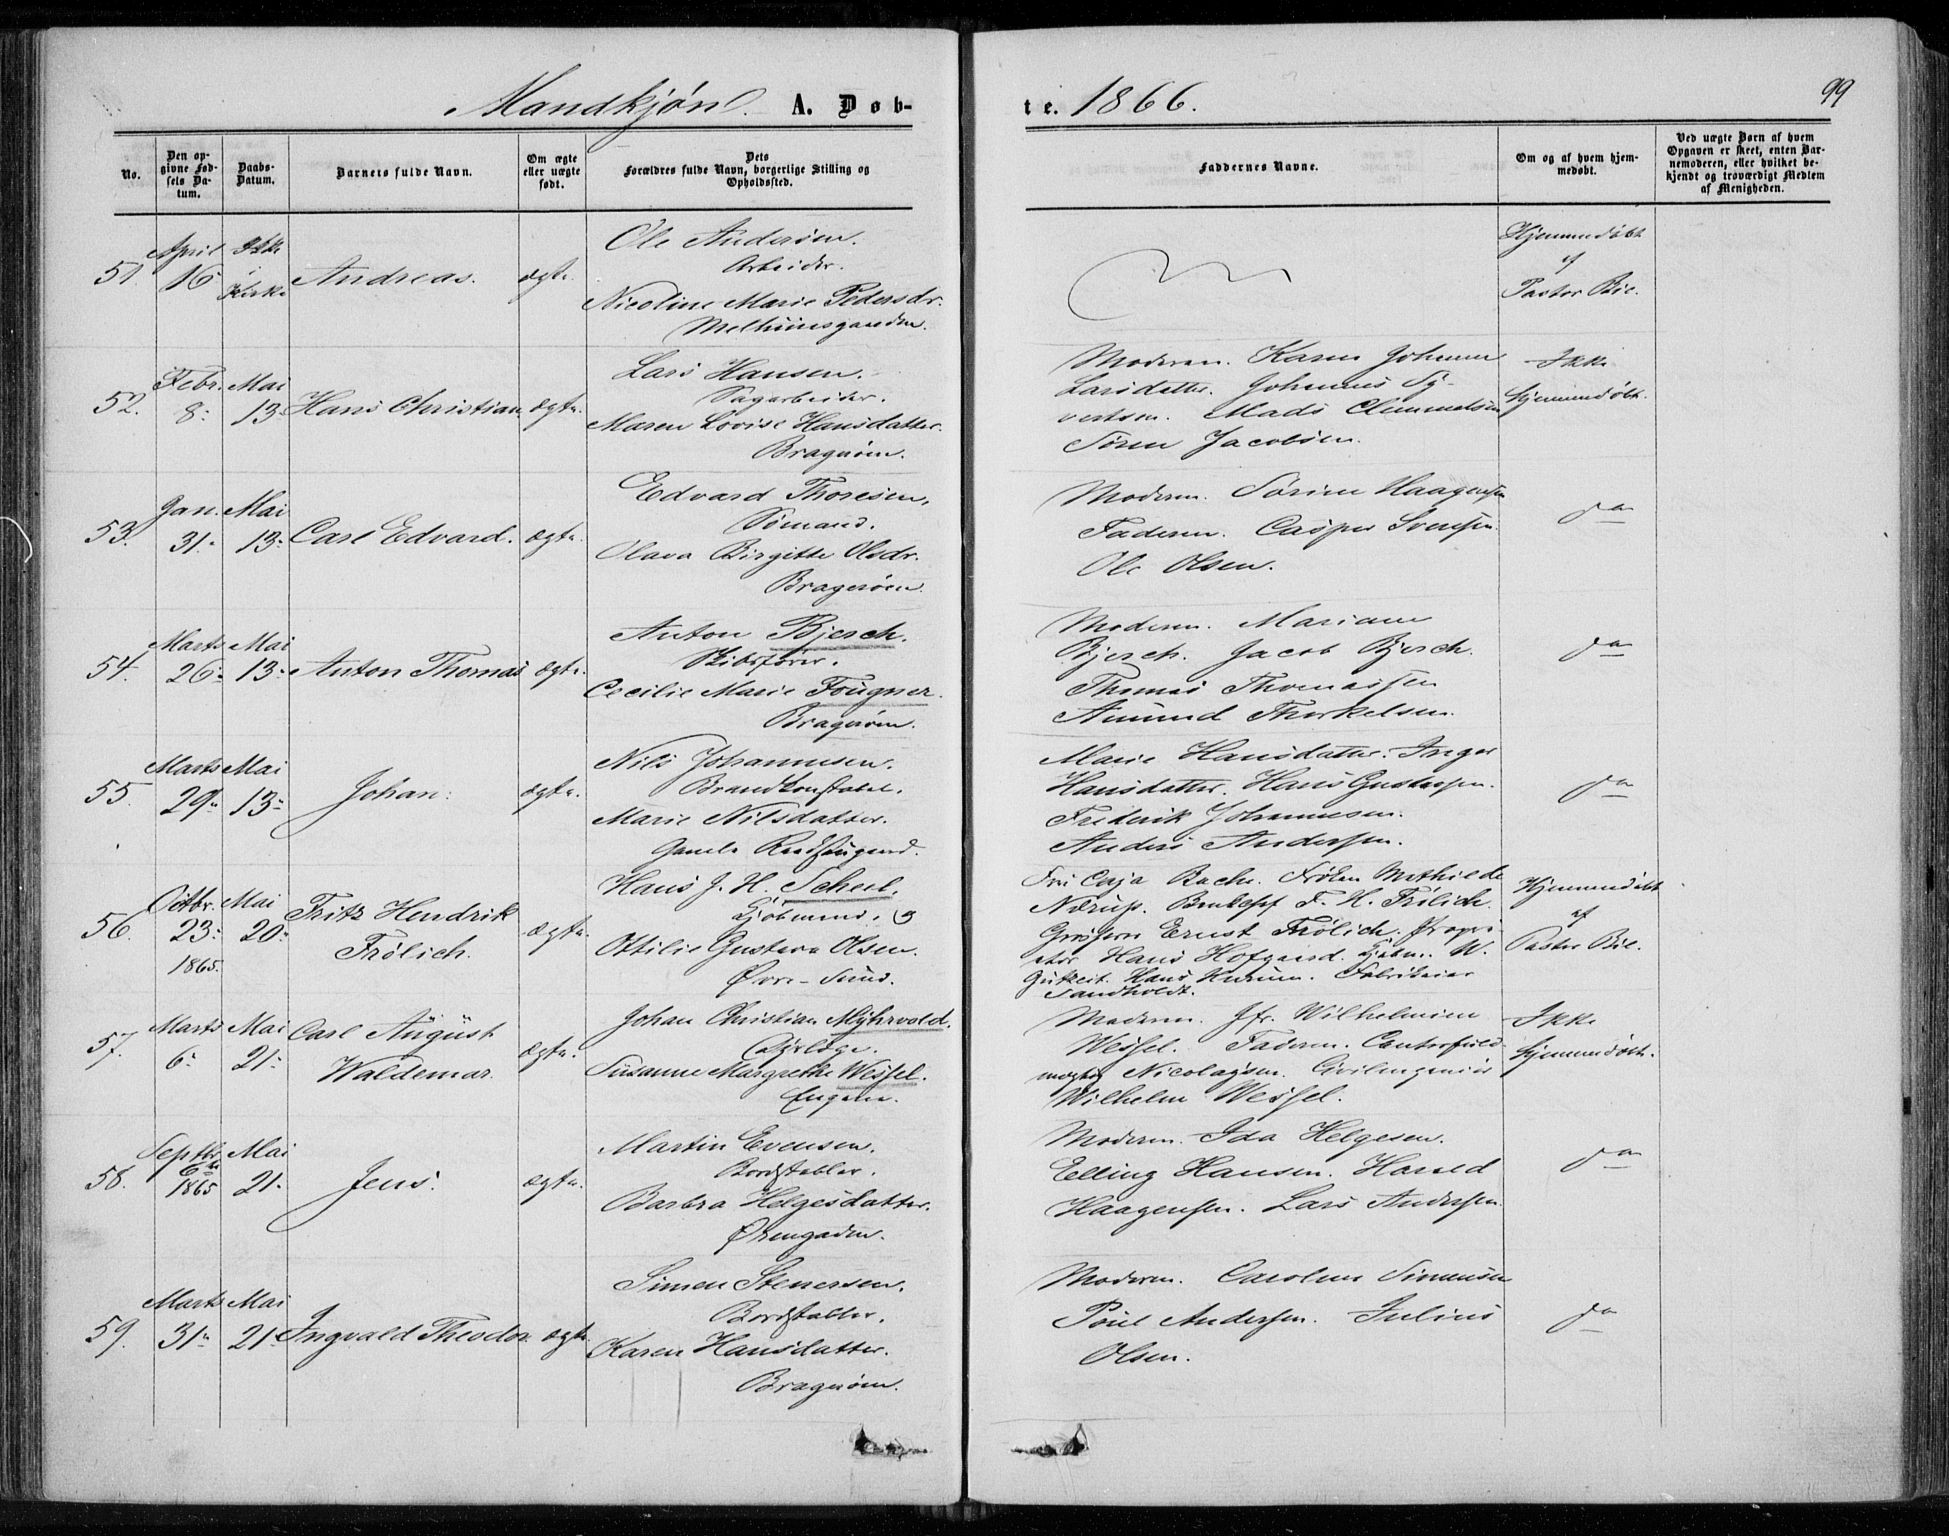 Mandkjøn. A. Døb-
te. 1866.
99
No.
Den op-
givne Fød-
sels Da-
tum.
Daabs-
Datum.
Barnets fulde Navn.
Om ægte
eller uægte
født.
Dets
Forældres fulde Navn, borgerlige Stilling og
Opholdssted.
Faddernes Navne.
Om og af hvem hjem-
medøbt.
Ved uægte Børn af hvem
Opgaven er skeet, enten Bar-
nemoderen, eller hvilket be-
kjendt og troværdigt Medlem
af Menigheden.
51.
April
16
Ikke
i
Kirke
Andreas.
ægte.
Ole Andersen.
Arbeider.
Nicoline Marie Pedersdr.
Melhuusgaarden.
Hjemmedøbt
af
Pastor Bie.
52.
Febr.
8.
Mai
13.
Hans Christian
ægte.
Lars Hansen.
Sagarbeider.
Maren Lovise Hansdatter.
Bragerøen.
Moderen. Karen Johanne
Larsdatter. Johannes Sy-
vertsen. Mads Clemmetsen
Søren Jacobsen.
Ikke
hjemmedøbt.
53.
Jan.
31.
Mai
13.
Carl Edvard.
ægte.
Edvard Thoresen,
Sømand.
Olava Birgitte Olsdr.
Bragerøen.
Moderen. Sørine Haagensen
Faderen. Casper Svensen
Ole Olsen.
do
54.
Marts
26.
Mai
13.
Anton Thomas
ægte.
Anton Bjerch.
Skibsfører.
Cecilie Marie Fougner.
Bragerøen.
Moderen. Mariane
Bjerch. Jacob Bjerch.
Thomas Thomassen
Amund Thorkelsen.
do
55.
Marts
29.
Mai
13.
Johan.
ægte.
Nils Johannesen.
Brandkonstabel.
Marie Nilsdatter.
Gamle
Marie Hansdatter. Inger
Hansdatter. Hans Gustavsen.
Frederik Johannesen.
Anders Andersen.
do
56.
Octbr.
23.
1865.
Mai
20.
Fritz Hendrik
Frølich.
ægte.
Hans J. H. Scheel.
Kjøbmand. og
Ottilie Gustava Olsen.
Øvre-Sund.
Fru Caja Bache. Frøken Mathilde
Nærup. F. H. Frølich.
Grosserer Ernst Frølich. Propri-
etær Hans Hofgaard. Kjøbm. W.
Gutzeit. Hans Fabrikeier
Sandholdt.
Hjemmedøbt
af
Pastor Bie.
57.
Marts
6.
Mai
21.
Carl August
Waldemar.
ægte.
Johan Christian Myhrvold.
Susanne Margrethe Wessel.
Engene.
Moderen. Jfr. Wilhelmine
Wessel. Faderen. Contorfuld-
mægtig Nicolaysen. Civilingeniør
Wilhelm Wessel.
Ikke
hjemmedøbt.
58.
Septbr.
6te
1865
Mai
21.
Jens.
ægte.
Martin Evensen.
Bordstabler.
Barbra Helgesdatter.
Ørengaden.
Moderen. Ida Helgesen.
Elling Hansen. Harald
Haagensen. Lars Andersen.
do
59.
Marts
31.
Mai
21.
Ingvald Theodor
ægte.
Simen Stenersen.
Bordstabler.
Karen Hansdatter.
Bragerøen.
Moderen. Caroline Simensen
Poul Andersen. Julius
Olsen.
do